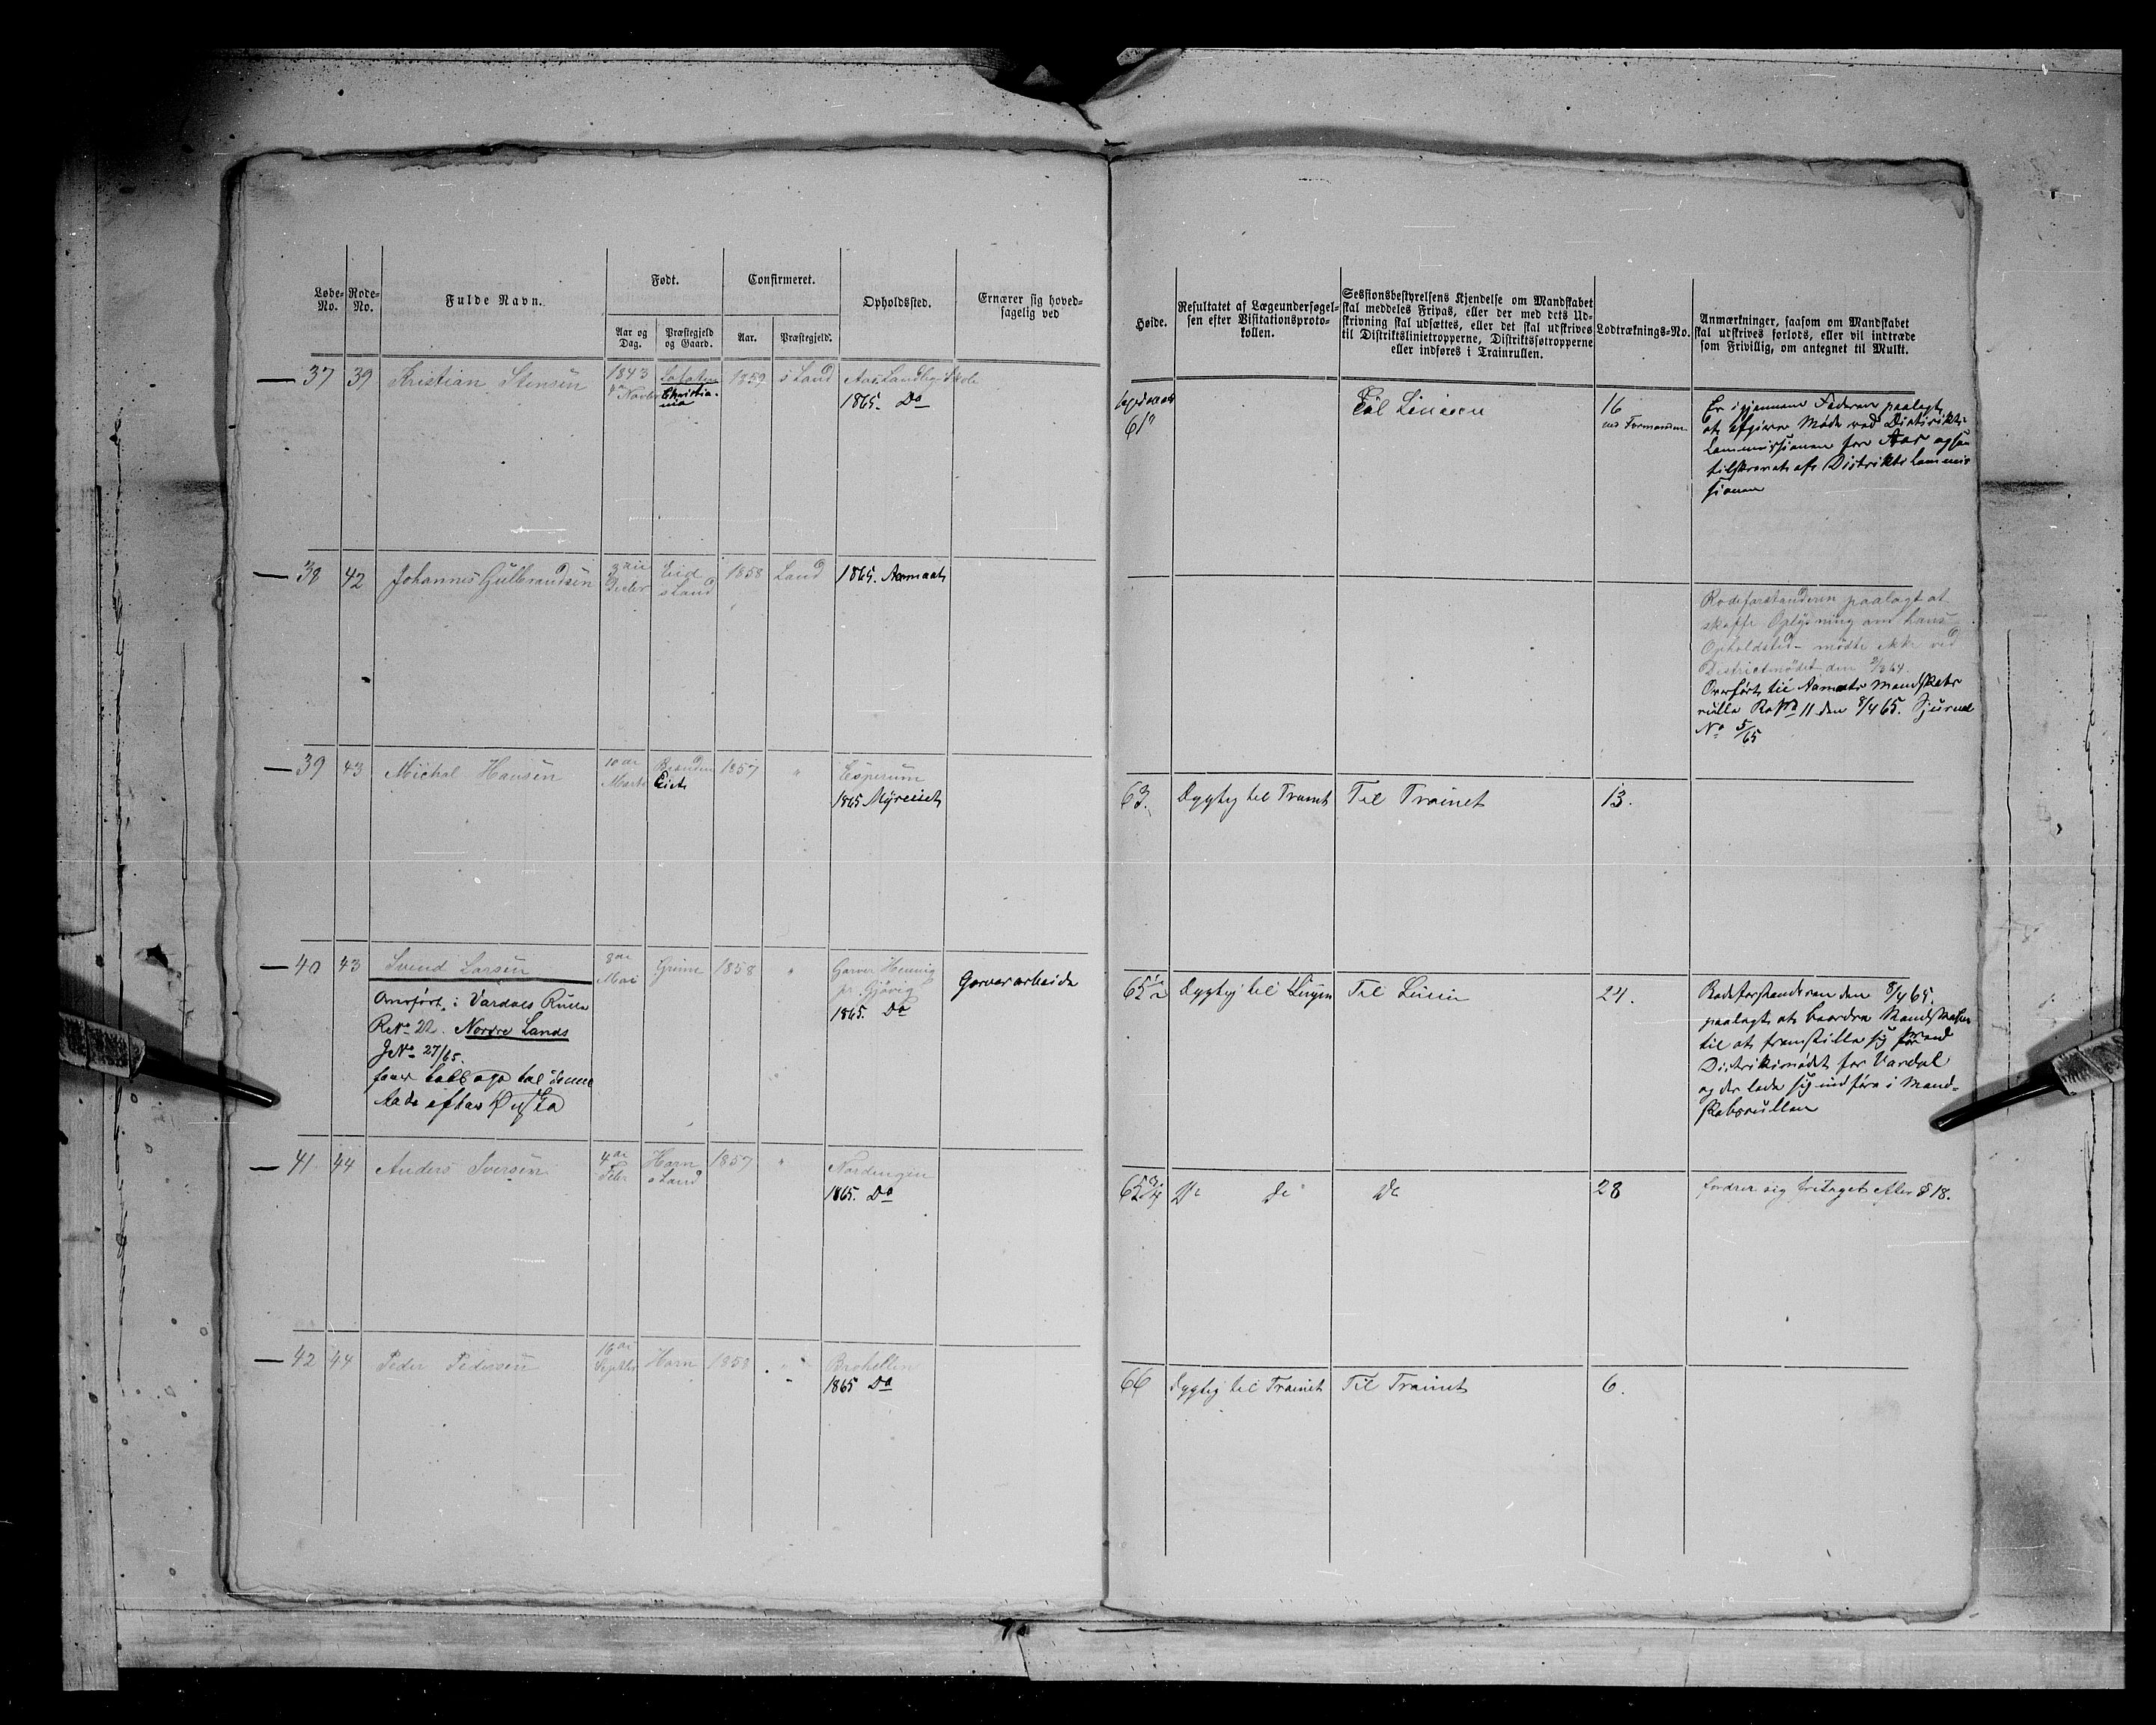 Løbe-No.
Rode-No.
Fulde Navn.
Født.
Aar og Dag.
Præstegjeld og Gaard.
Confirmeret.
Aar.
Præstegjeld.
Opholdssted.
Ernærer sig hoved-
sagelig ved
37 39 Kristian Stensen 1843 1859 s Land Aas Landbrg. Skole
Novbr Christia-
nia
1865. Do
38 42 Johannes Gulbrandsen Decbr Eid s Land 1858 Land 1865. Aamodt
39 43 Michal Hansen 10de Marts Eiet 1857 " Esperum
1865 Myreiet
40 43 Svend Larsen 8de Mai Grime 1858 " Garver Hennig
pr. Gjøvig
1865. Do
Garverarbeide
Overført i Vardals Rulle
R No 22. Nordre Lands
J No 27/65.
41 44 Anders Iversen 4de Febr Horn s Land 1857 " Nordengen
1865. Do
42 44 Peder Pedersen 16de Septbr Horn 1858 " Brohellen
1865 Do
Høide.
Resultatet af Lægeundersøgel-
sen efter Visitationsproto-
kollen.
Sessionsbestyrelsens Kjendelse om Mandskabet
skal meddeles Fripas, eller der med dets Ud-
skrivning skal udsættes, eller det skal udskrives
til Distriktslinietropperne, Distriktsfotropperne
eller indføres i Trainrullen.
Lodtræknings-No.
Anmærkninger, saasom om Mandskabet
skal udskrives forlods, eller vil indtræde
som Frivillig, om antegnet til Mulkt.
61" Til Linien 16
ved Formanden
Er igjennem Faderen paalagt
at afgivre Møde ved Distrikts-
kommissionen for Aas ogsaa
tilskrevet af Distriktskommis
sionen
Rodeforstanderen paalagt at
skaffe Oplysning om hans
Opholdsted - mødte ikke ved
Districtmødet den 2/3 64.
Overført til Aamots Mandskabs
rulle R No 11 den 8/4 65. Sjurnal
No 5/65
63. Dygtig til Trainet Til Trainet 13.
65 1/2 Dygtig til Linjen Til Linien 24.
Rodeforstanderen den 8/4 65.
paalagt at beordre Mandskabet
til at fremstille sig ved
Distriktsmødet for Vardal
og der lade sig indføre i Mand-
skabsrullen
65 3/4 Do do Do 28 fordrer sig fritaget efter § 18.
66 Dygtig til Trainet Til Trainet 6.